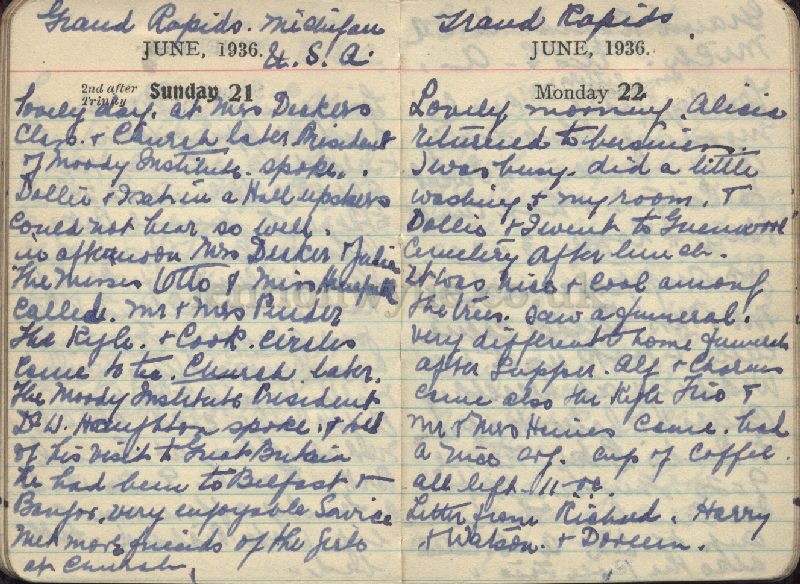 Grand Rapids. Michigan
JUNE, 1936. U. S. A.
2nd after
Trinity Sunday 21
lovely day. at Mrs Deckers
Class. & Church later President
of Moody Institute. spoke.
Dollie & I sat in a Hall upstairs
could not hear so well.
in afternoon Mrs Decker & Julia
The Misses Otto & Miss
Called. Mr & Mrs
The Kyle. & Cook. circles
came to tea. Church later.
The Moody Institute President
Dr W. Haughton spoke. & told
of his visit to Great Britain
he had been to Belfast &
Bangor. very enjoyable Service
met more friends of the girls
at Church.
Grand Rapids.
JUNE, 1936.
Monday 22
Lovely morning. Alicia
returned to business.
I was busy. did a little
washing & my room. &
Dollie & I went to Greenwood
Cemetery after lunch.
It was nice & cool among
the trees. saw a funeral.
very different to home funerals
after Supper. Alf & Charles
came also the Kyle Trio &
Mr & Mrs Heines came. had
a nice cup of Coffee.
all left. 11-
Letter from Richard. Harry
& Watson. & Doreen.